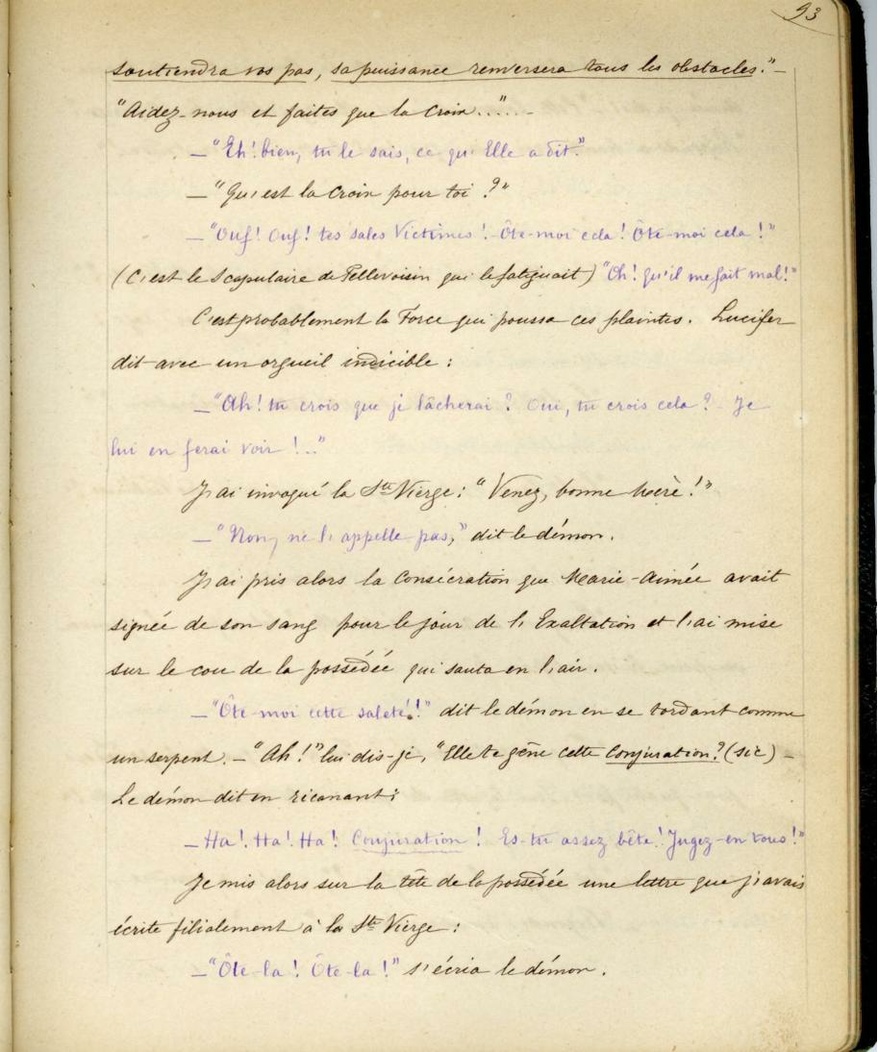 93
soutiendra vos pas, sa puissance renversera tous les obstacles." –
"Aidez-nous et faites que la Croix......"
– "Eh! bien, tu le sais, ce qu'Elle a dit."
– "Qu'est la Croix pour toi ?"
– "Ouf! Ouf! tes sales Victimes! Ôte-moi cela! Ôte-moi cela!"
(C'est le Scapulaire de Pellevoisin qui le fatiguait) "Oh! qu'il me fait mal!"
C'est probablement la Force qui poussa ces plaintes. Lucifer
dit avec un orgueil indicible :
– "Ah! tu crois que je lâcherai? Oui, tu crois cela? Je
lui en ferai voir !.."
J'ai invoqué la Ste Vierge : "Venez, bonne Mère!"
– "Non, ne l'appelle pas," dit le démon.
J'ai pris alors la Consécration que Marie-Aimée avait
signée de son sang pour le jour de l'Exaltation et l'ai mise
sur le cou de la possédée qui sauta en l'air.
– "Ôte-moi cette saleté!" dit le démon en se tordant comme
un serpent. – "Ah!" lui dis-je, "Elle te gêne cette Conjuration? (sic) –
Le démon dit en ricanant :
– Ha! Ha! Ha! Conjuration ! Es-tu assez bête! Jugez-en tous!"
Je mis alors sur la tête de la possédée une lettre que j'avais
écrite filialement à la Ste Vierge :
– "Ôte-la! Ôte-la!" s'écria le démon.